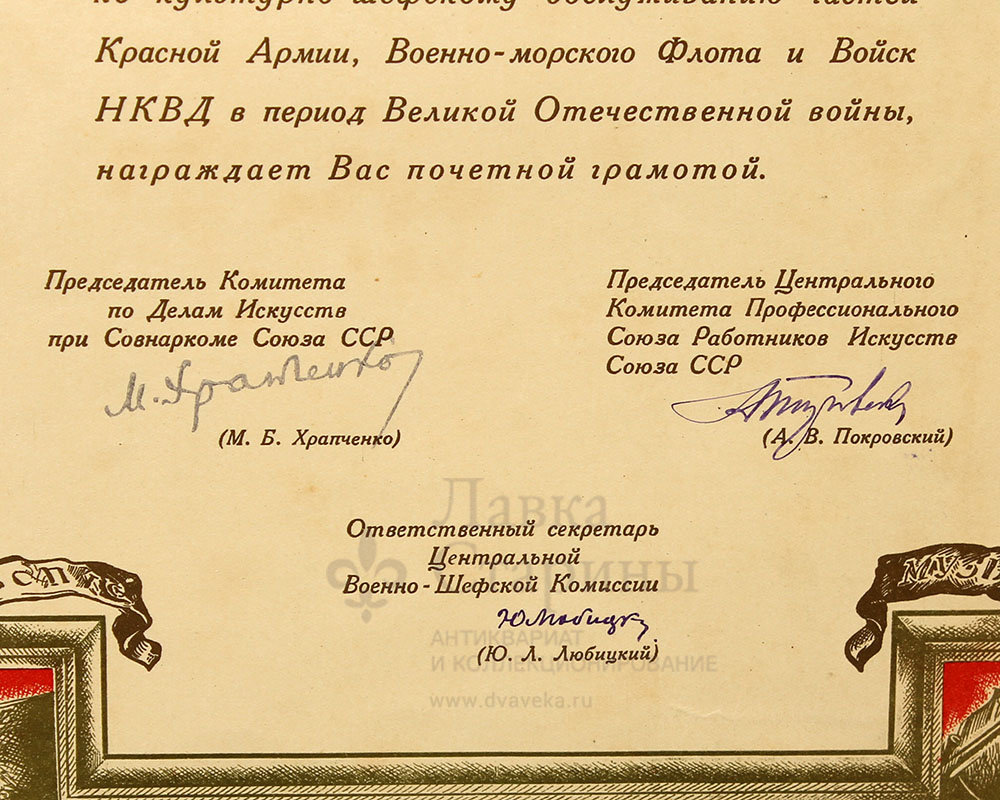 по культурно-шефскому обслуживанию частей
Красной Армии, Военно-морского Флота и Войск
НКВД в период Великой Отечественной войны,
награждает Вас почетной грамотой.
Председатель Комитета
по Делам Искусств
при Совнаркоме Союза ССР
М. Храпченко
(М. Б. Храпченко)
Председатель Центрального
Комитета Профессионального
Союза Работников Искусств
Союза ССР
(А. В. Покровский)
Лавка
Старины
Ответственный секретарь
Центральной
Военно-Шефской Комиссии
ЮЛюбицкий
(Ю. Л. Любицкий)
АНТИКВАРИАТ
И КОЛЛЕКЦИОНИРОВАНИЕ
www.dvaveka.ru